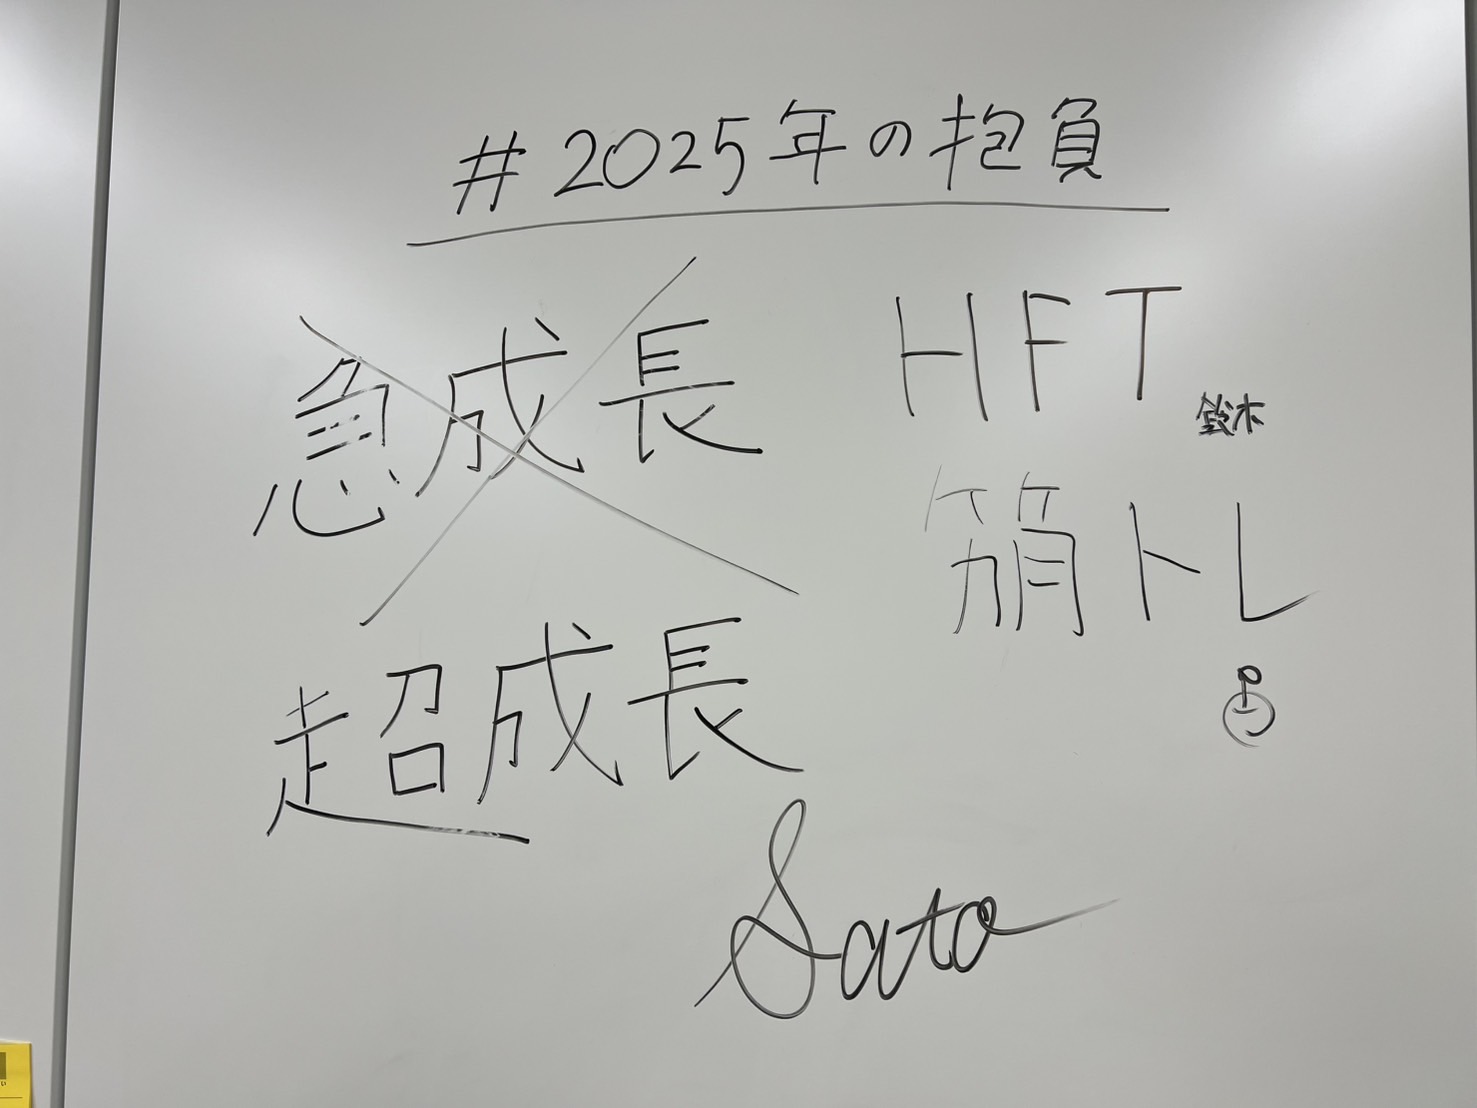 #2025年の抱負
急成長
超成長
Sato
HFT
鈴木
筋トレ